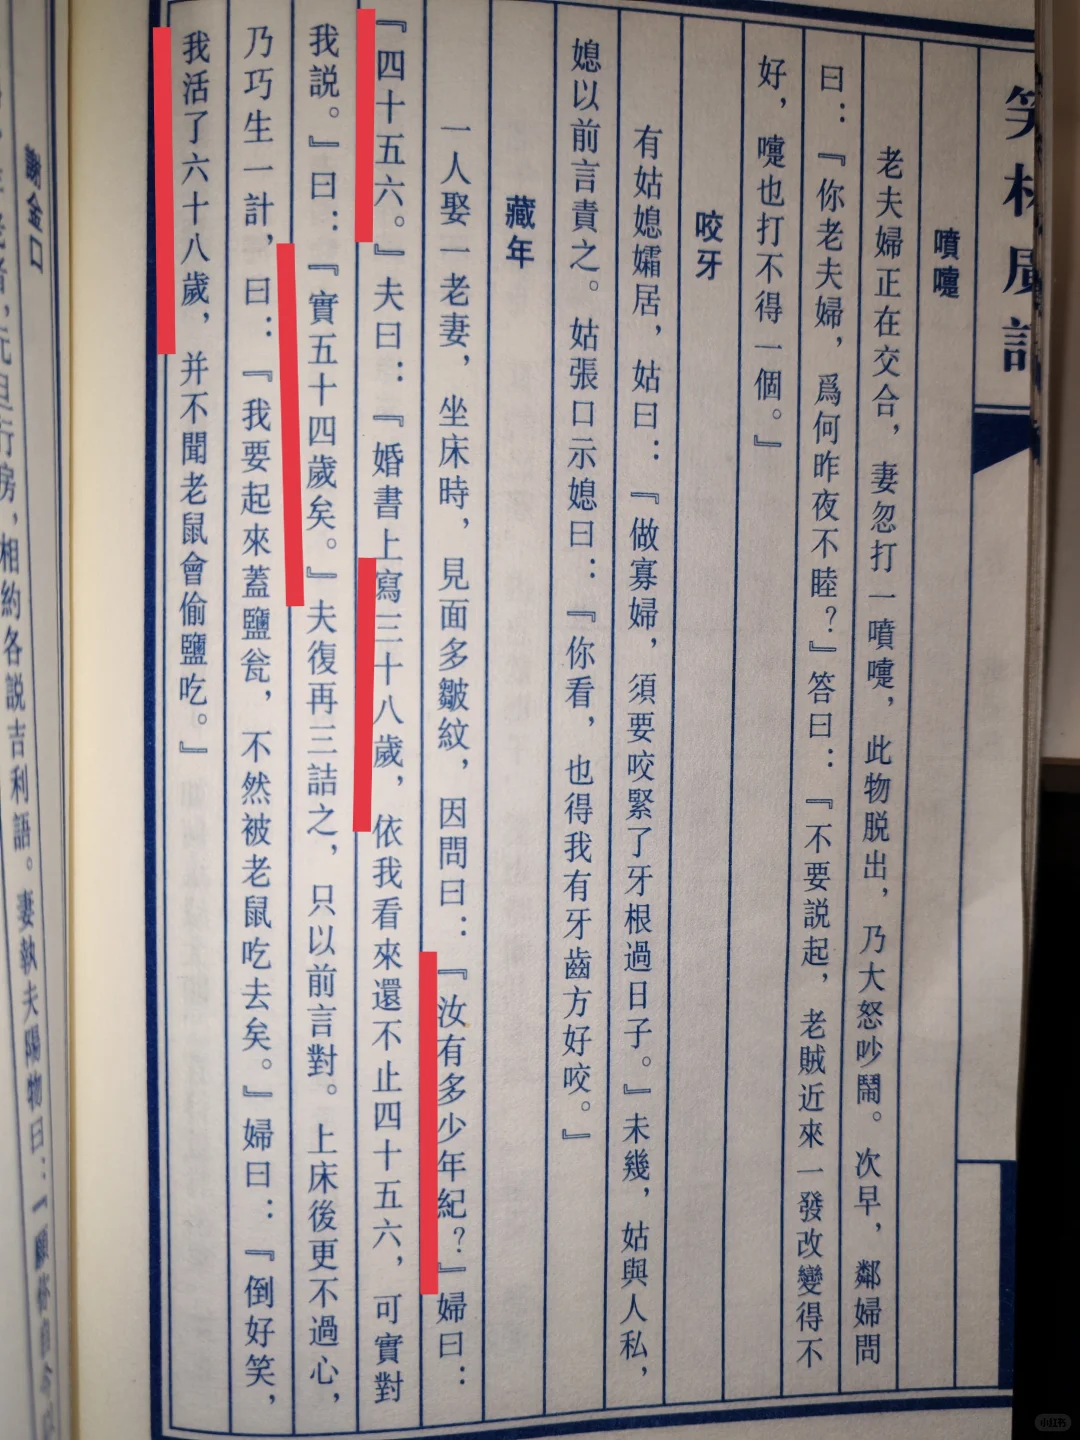 笑林廣記
噴嚏
老夫婦正在交合，妻忽打一噴嚏，此物脫出，乃大怒吵鬧。次早，鄰婦問
曰：『你老夫婦，爲何昨夜不睦？』答曰：『不要説起，老賊近來一發改變得不
好，嚏也打不得一個。』
咬牙
有姑媳孀居，姑曰：『做寡婦，須要咬緊了牙根過日子。』未幾，姑與人私，
媳以前言責之。姑張口示媳曰：『你看，也得我有牙齒方好咬。』
藏年
一人娶一老妻，坐床時，見面多皺紋，因問曰：『汝有多少年紀？』婦曰：
『四十五六。』夫曰：『婚書上寫三十八歲，依我看來還不止四十五六，可實對
我説。』曰：『實五十四歲矣。』夫復再三詰之，只以前言對。上床後更不過心，
乃巧生一計，曰：『我要起來蓋鹽瓮，不然被老鼠吃去矣。』婦曰：『倒好笑，
我活了六十八歲，并不聞老鼠會偷鹽吃。』
謝金口
老者，元旦行房，相約各説吉利語。妻執夫陽物曰：『願
小红书